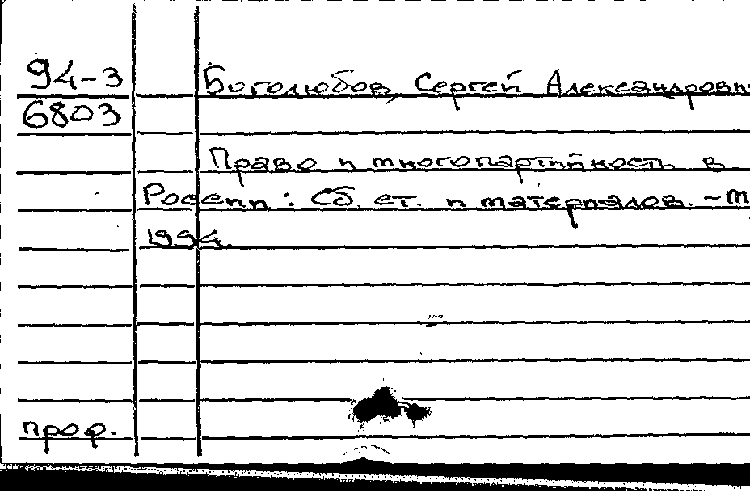 94-3
6803
Боголюбов, Сергей Александрови
Право и многопартийность в
России : Сб. ст. и материалов. – М
1994.
проф.